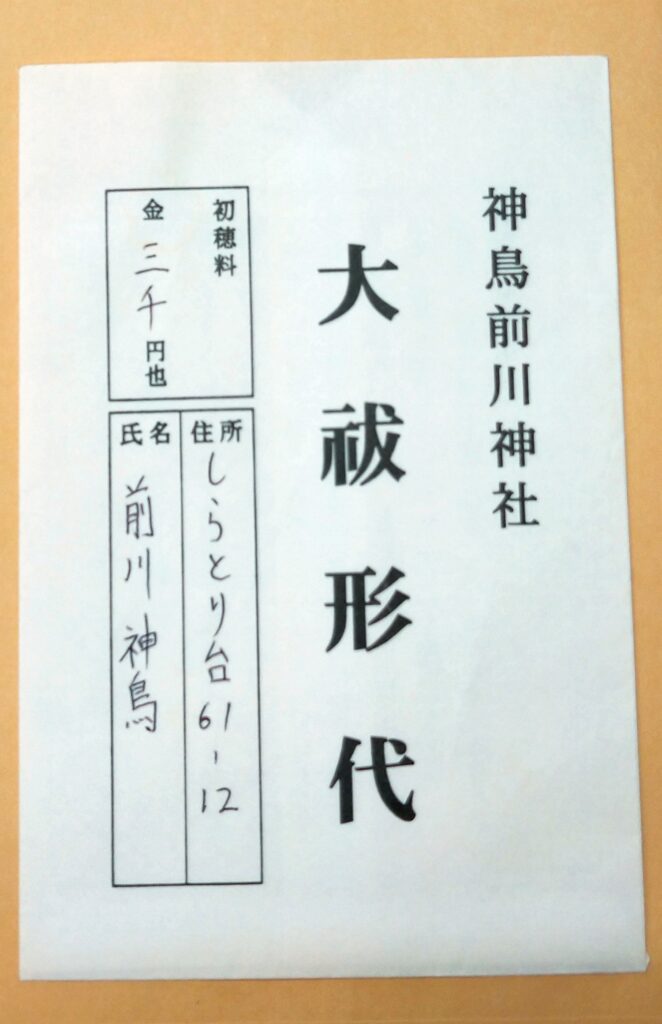 神鳥前川神社
大祓形代
初穂料
金 三千円也
住所
しらとり台61-12
氏名
前川 神鳥